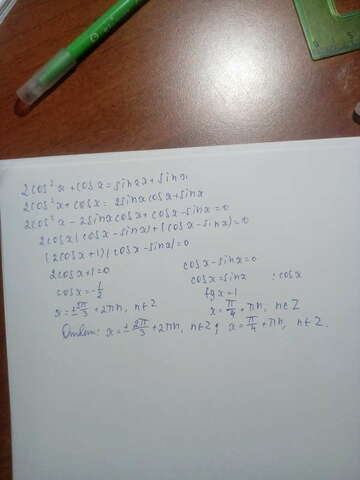 2cos²x + cosx = sin2x + sinx
2cos²x + cosx = 2sinxcosx + sinx
2cos²x - 2sinxcosx + cosx - sinx = 0
2cosx(cosx - sinx) + (cosx - sinx) = 0
(2cosx + 1)(cosx - sinx) = 0
2cosx + 1 = 0 cosx - sinx = 0
cosx = -1/2 cosx = sinx : cosx
x = ± 2π/3 + 2πn, n∈Z tgx = 1
x = π/4 + πn, n∈Z
Ответ: x = ± 2π/3 + 2πn, n∈Z; x = π/4 + πn, n∈Z.